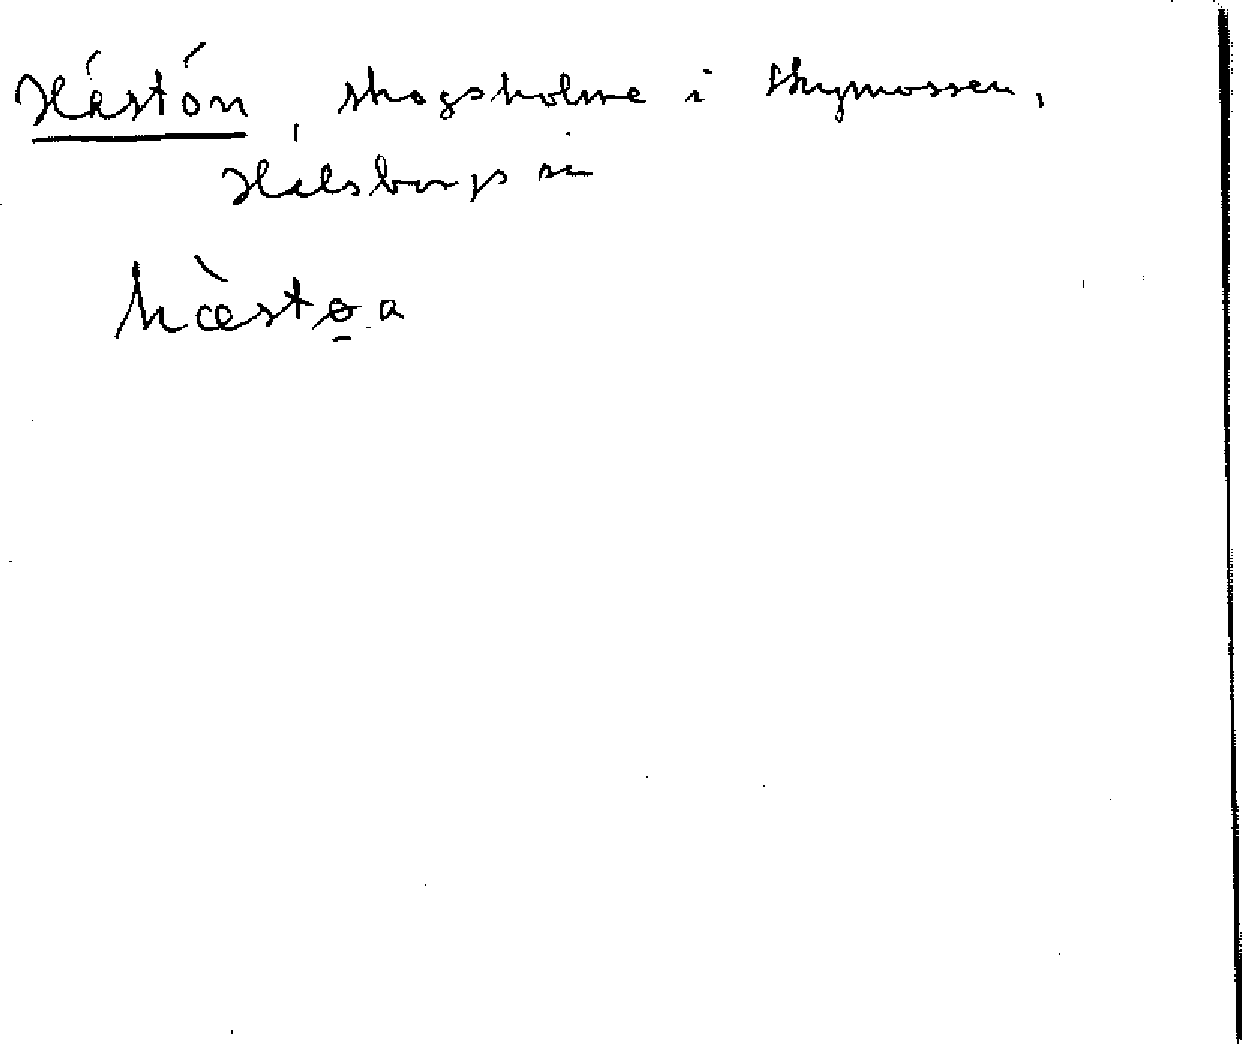 Hästön, skogsholme i Skymossen,
Hälsbergs sn
hæ̀stø̱a